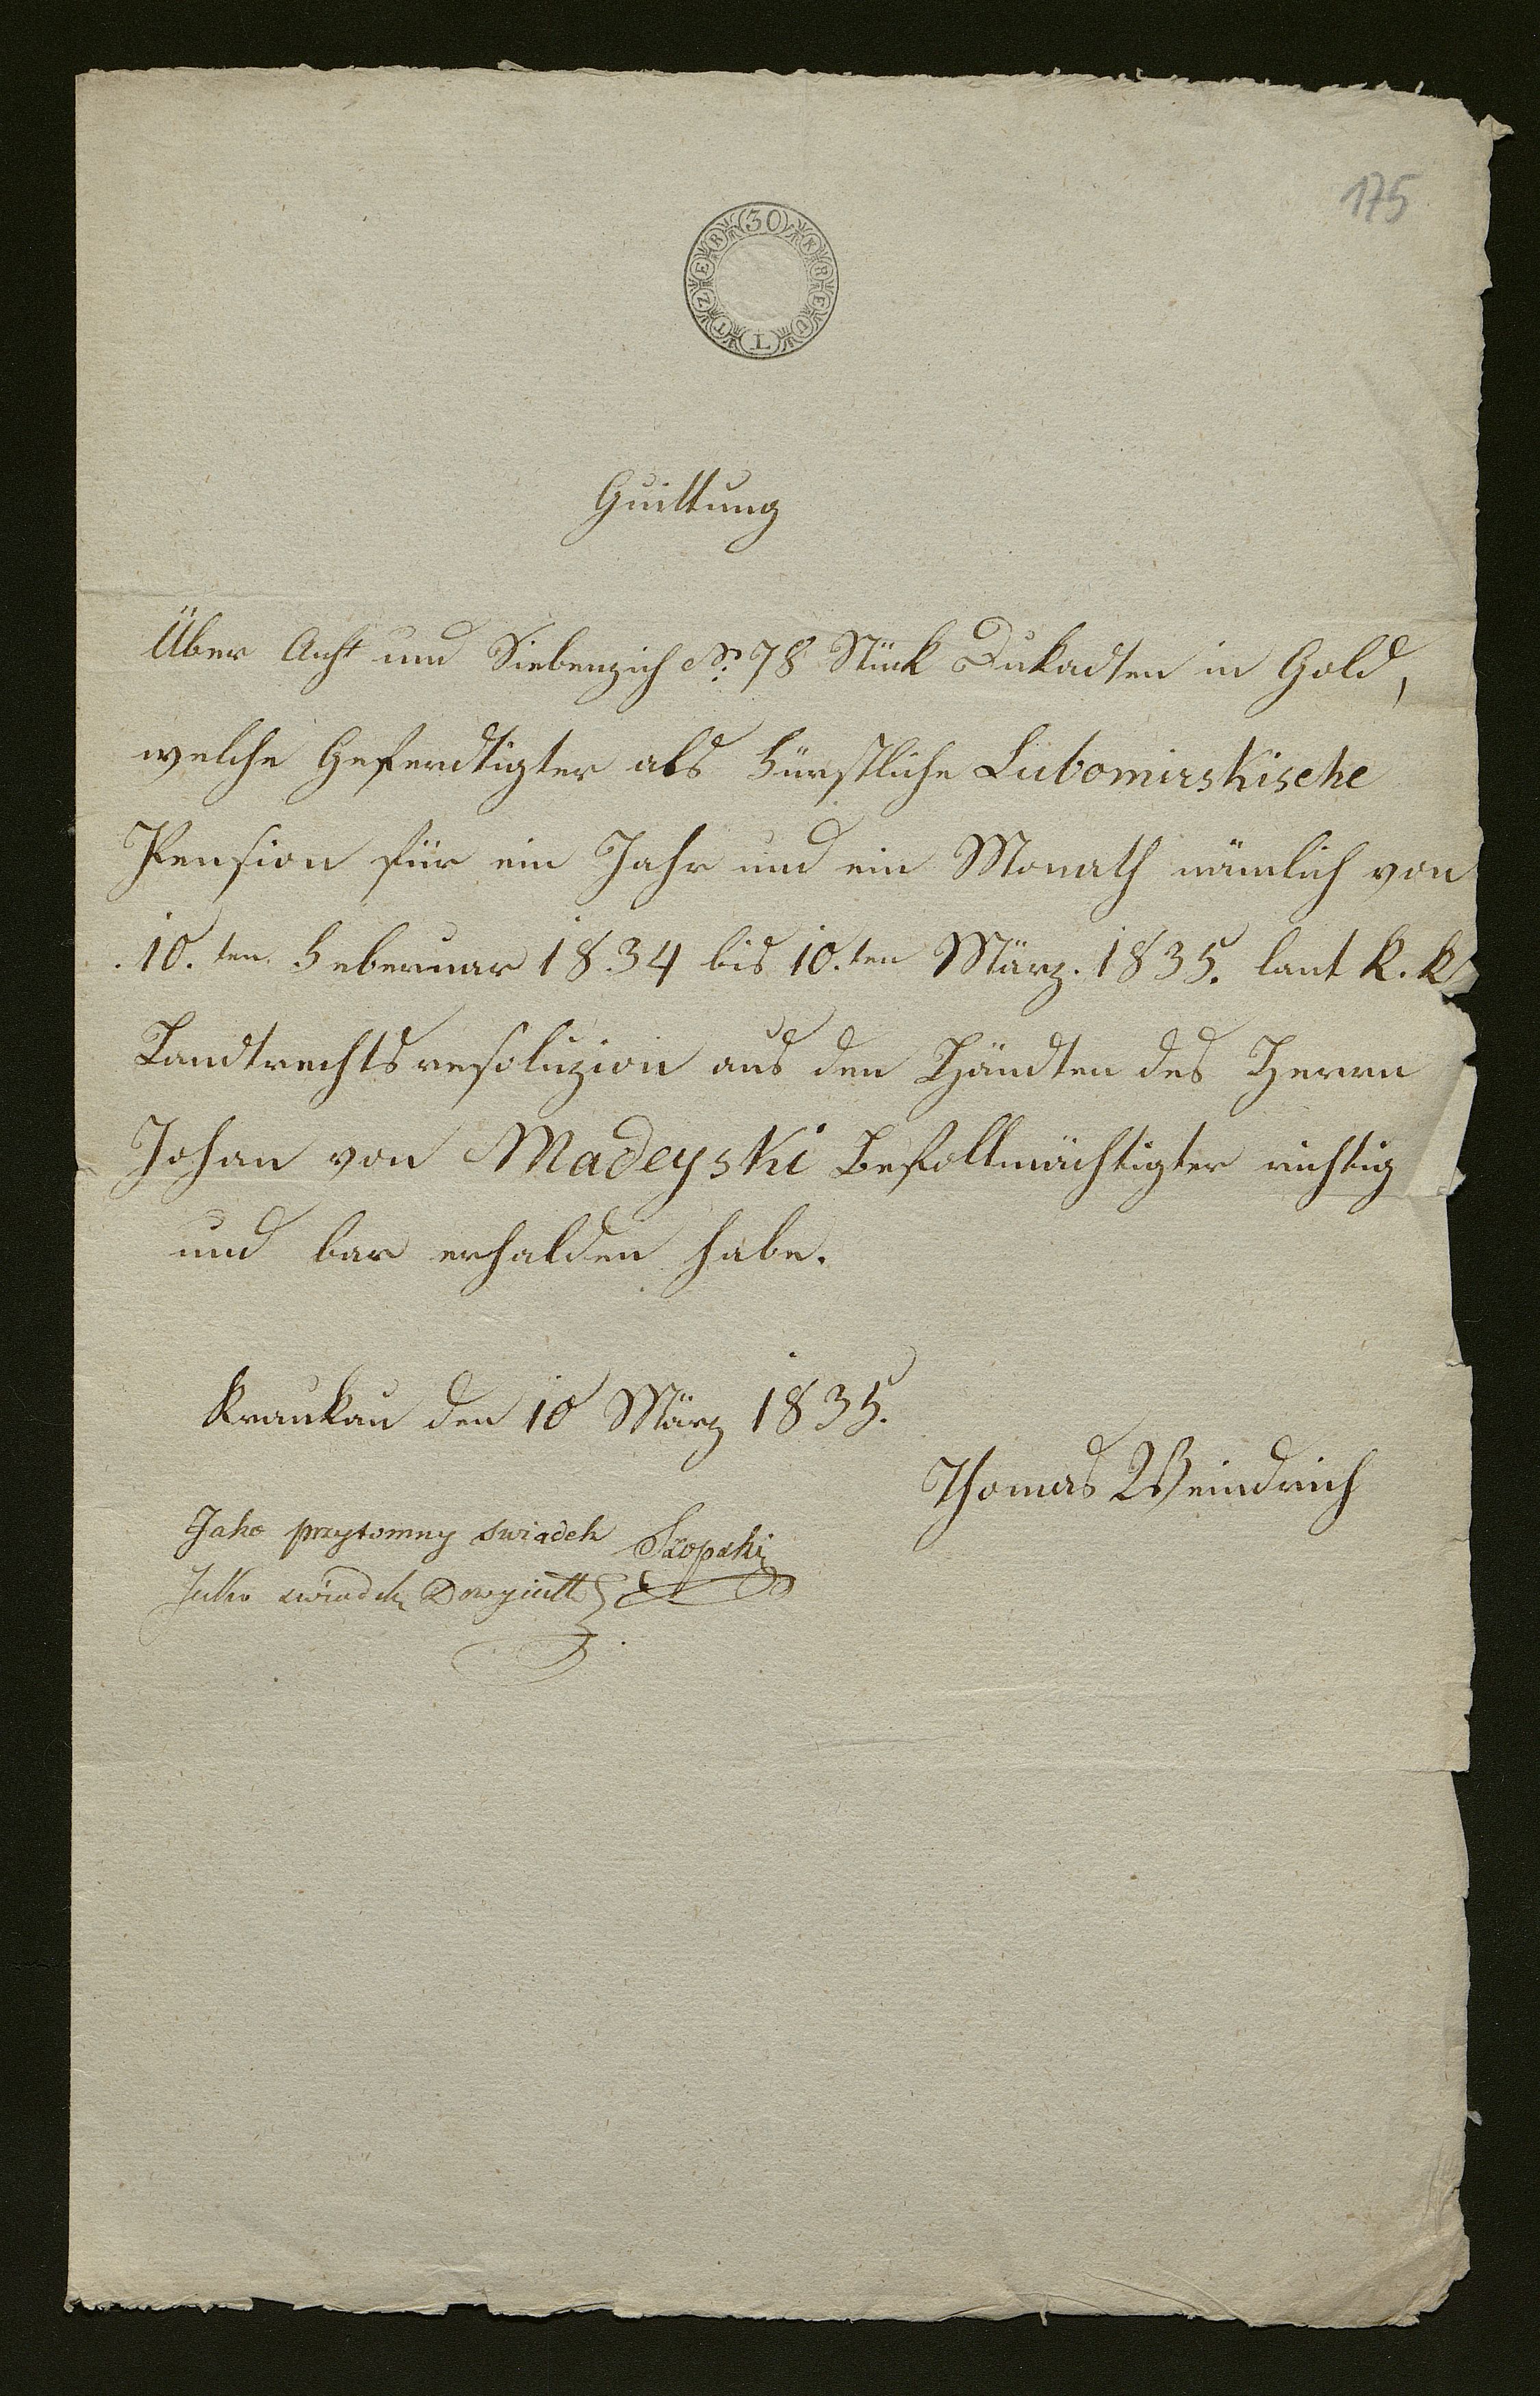 175
30 KREUTZER
Guittung
Über Acht und Siebenzich No 78 Stück Dukadten in Gold,
welche Geferdtigter als Fürstliche Lubomirskische
Pension für ein Jahr und ein Monath nämlich von
10.ten Feberuar 1834 bis 10.ten März. 1835. laut k. k
Landtrechtsresoluzion aus den Händten des Herrn
Johan von Madeyski Befollmächtigter richtig
und bar erhalden habe.
Kraukau den 10 März 1835.
Thomas Weindrich
Jako przytomny swiadek Skopski
Jako swiadek